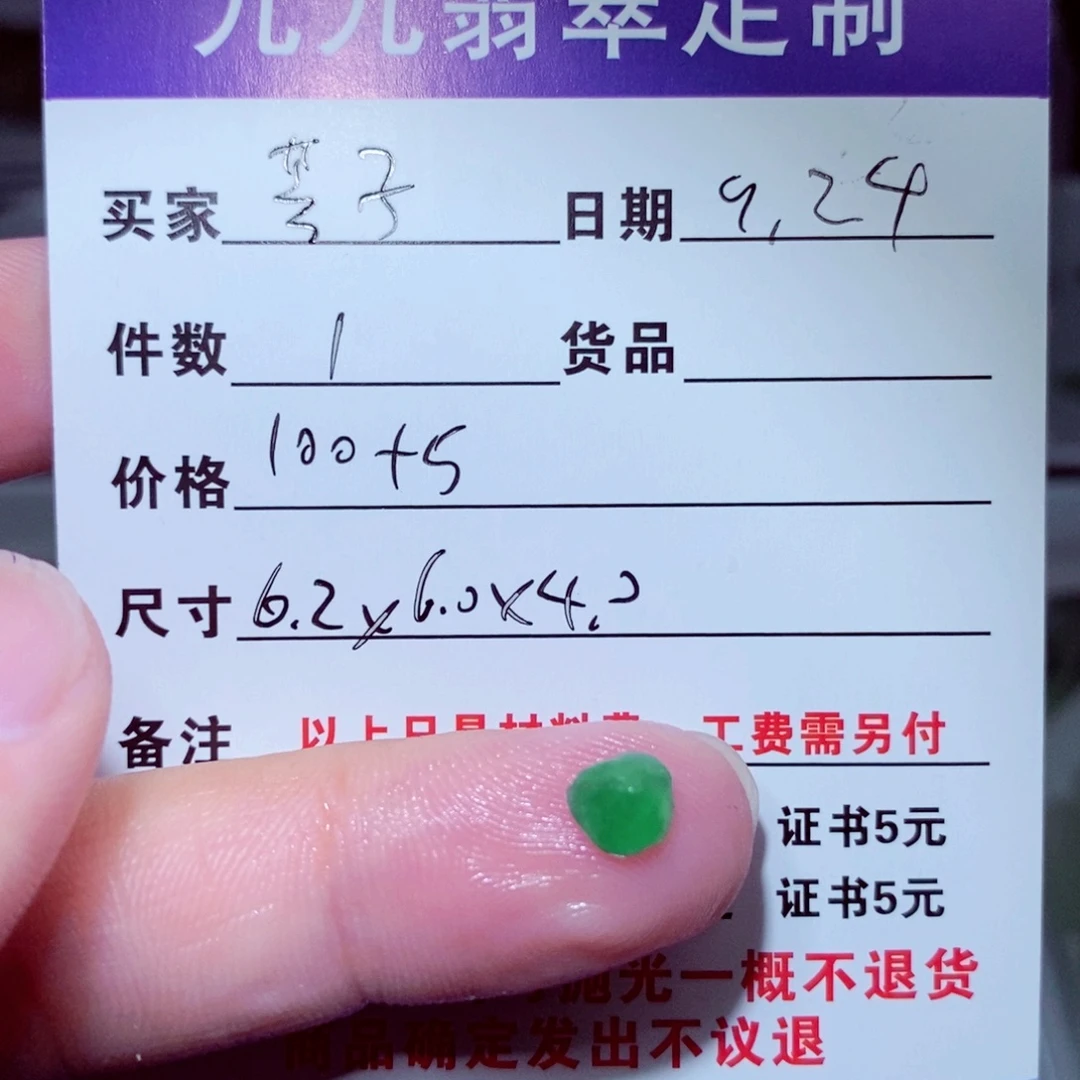 九九翡翠定制
买家 日期 9.24
件数 1 货品
价格 100+5
尺寸 6.2x6.0x4.0
备注 以上只是材料费 工费需另付
证书5元
证书5元
抛光一概不退货
商品确定发出不议退